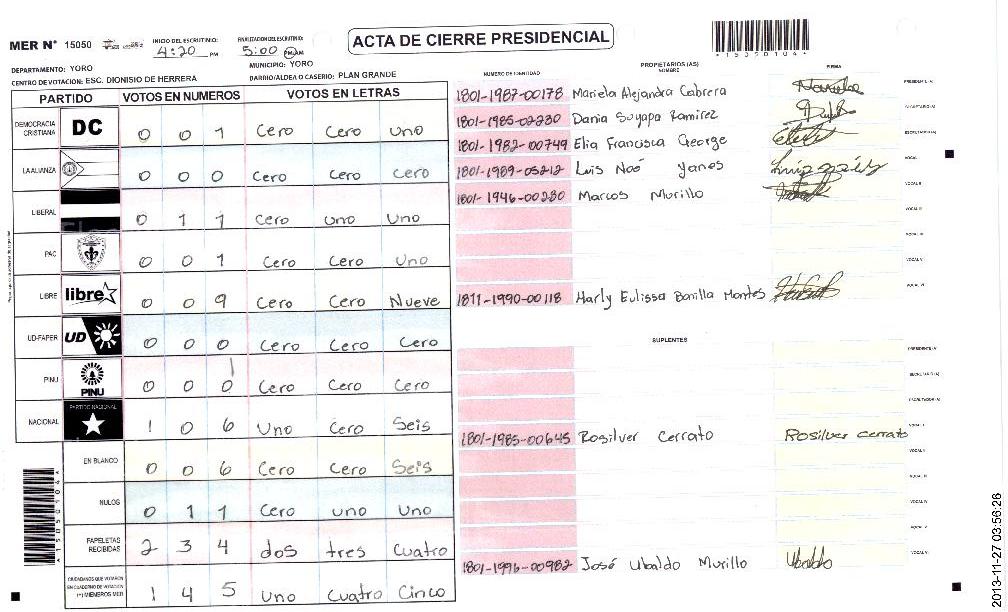 MER N° 15050
INICIO DEL ESCRUTINIO: 4:20 PM
FINALIZACION DEL ESCRUTINIO: 5:00 PM/AM
ACTA DE CIERRE PRESIDENCIAL
*15350104*
DEPARTAMENTO: YORO
MUNICIPIO: YORO
CENTRO DE VOTACION: ESC. DIONISIO DE HERRERA
BARRIO/ALDEA O CASERIO: PLAN GRANDE
PARTIDO VOTOS EN NUMEROS VOTOS EN LETRAS
DEMOCRACIA CRISTIANA DC 0 0 1 Cero Cero Uno
LA ALIANZA 0 0 0 Cero Cero Cero
LIBERAL 0 1 1 Cero uno Uno
PAC 0 0 1 Cero Cero Uno
LIBRE libre 0 0 9 Cero Cero Nueve
UD-FAPER UD 0 0 0 Cero Cero Cero
PINU PINU 0 0 0 Cero Cero Cero
NACIONAL PARTIDO NACIONAL 1 0 6 Uno Cero Seis
EN BLANCO 0 0 6 Cero Cero Seis
NULOS 0 1 1 Cero uno Uno
PAPELETAS RECIBIDAS 2 3 4 dos tres Cuatro
CIUDADANOS QUE VOTARON EN CUADERNO DE VOTACION (*) MIEMBROS MER 1 4 5 Uno Cuatro Cinco
PROPIETARIOS (AS)
NUMERO DE IDENTIDAD NOMBRE FIRMA
1801-1987-00178 Mariela Alejandra Cabrera PRESIDENTE (A)
1801-1985-02230 Dania Suyapa Ramirez
1801-1982-00749 Elia Francisca George SECRETARIO(A)
1801-1989-05212 Luis Noé Yanes VOCAL
1801-1946-00230 Marcos Murillo VOCAL II
1811-1990-00118 Harly Eulissa Bonilla Montes
SUPLENTES
PRESIDENTE (A)
SECRETARIO (A)
1801-1985-00645 Rosilver Cerrato Rosilver cerrato
1801-1996-00982 José Ubaldo Murillo Ubaldo
2013-11-27 03:56:26